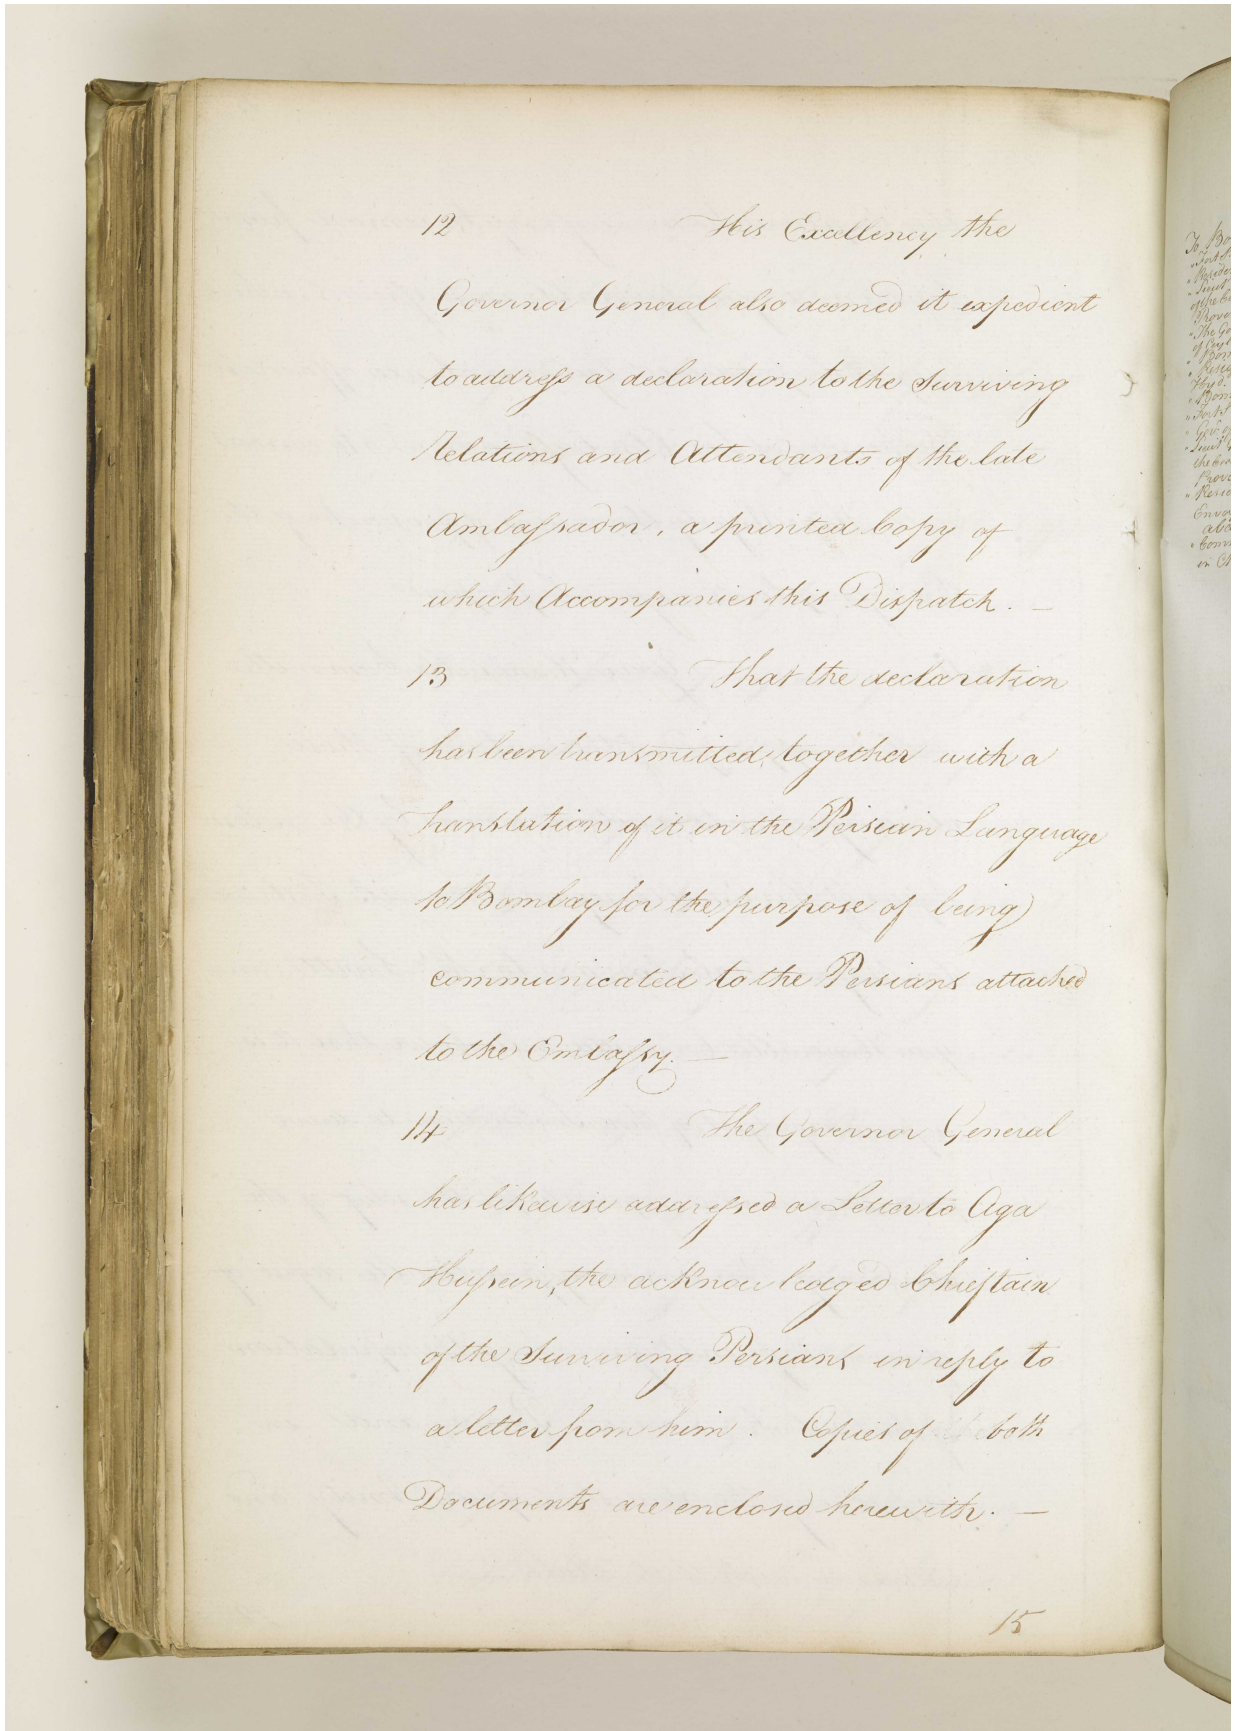 12 His Excellency the
Governor General also deemed it expedient
to address a declaration to the Surviving
relations and Attendants of the late
Ambassador, a printed Copy of
which Accompanies this Dispatch. —
13 That the declaration
has been transmitted, together with a
translation of it in the Persian Language
to Bombay for the purpose of being
communicated to the Persians attached
to the Embassy. —
14 The Governor General
has likewise addressed a Letter to Aga
Hussein, the acknowledged Chieftain
of the Surviving Persians in reply to
a letter from him. Copies of both
Documents are enclosed herewith. —
15